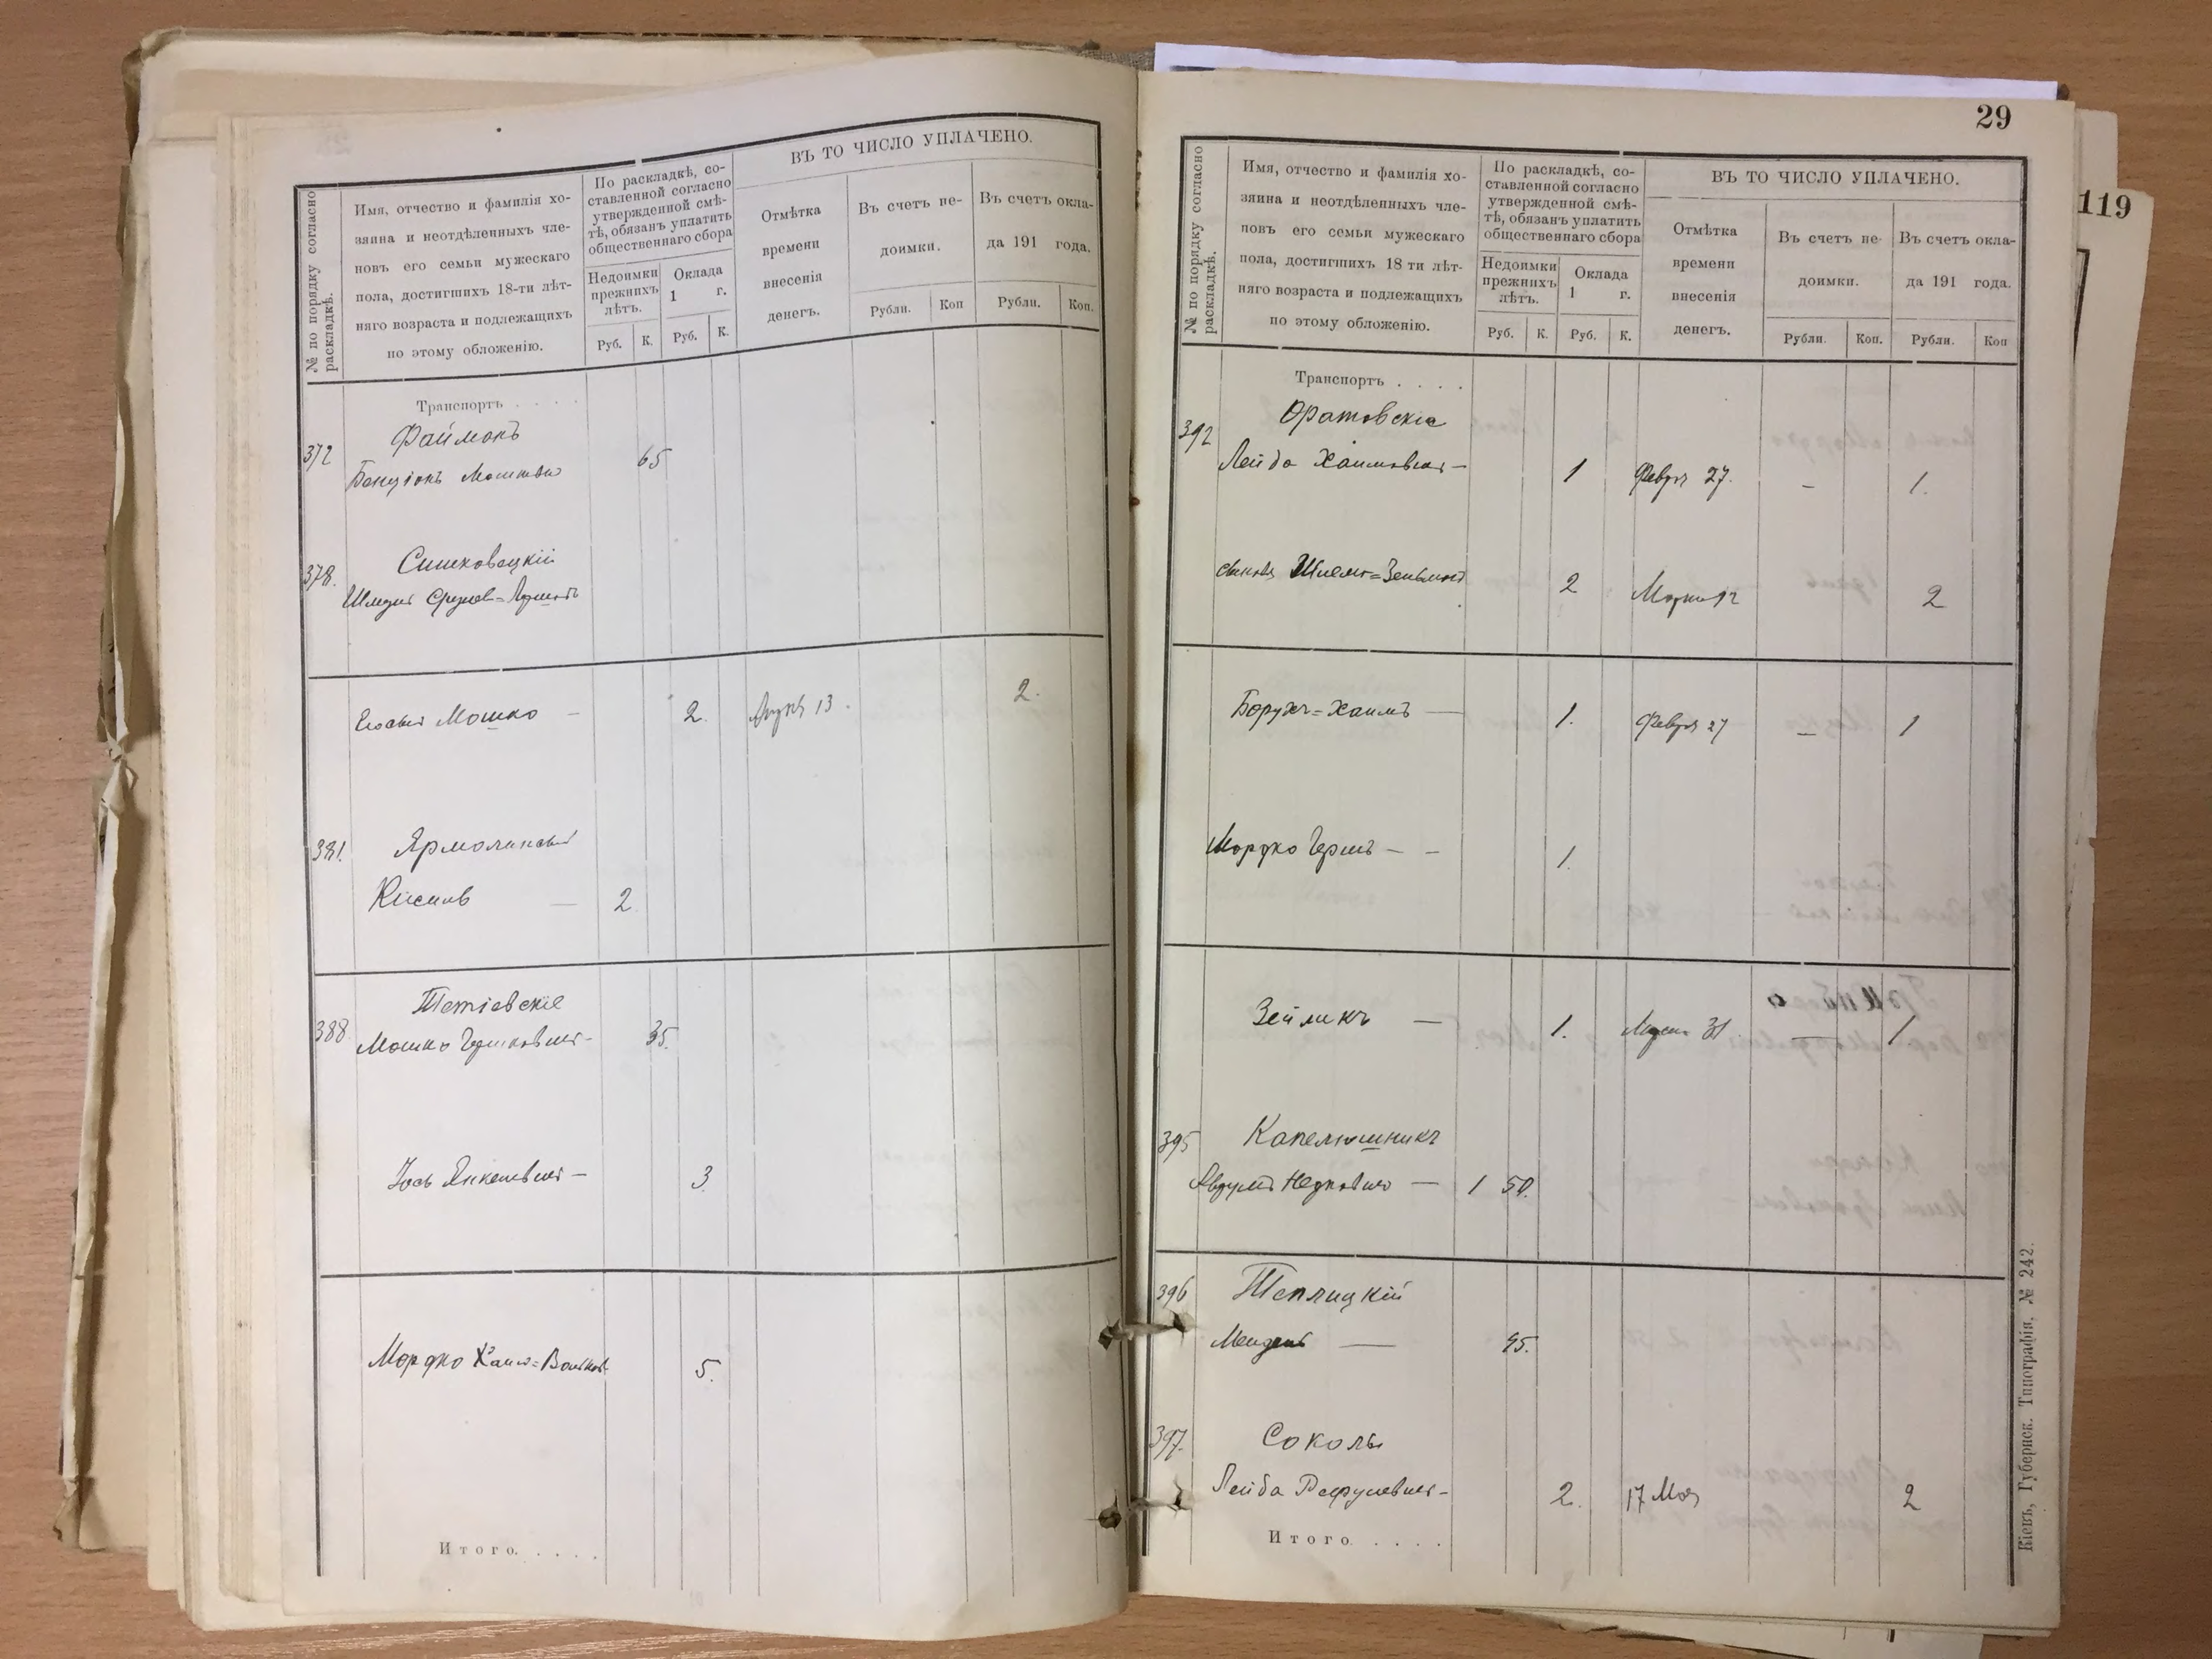 № по порядку согласно
раскладкѣ.
Имя, отчество и фамилія хо-
зяина и неотдѣленныхъ чле-
новъ его семьи мужескаго
пола, достигшихъ 18-ти лѣт-
няго возраста и подлежащихъ
по этому обложенію.
По раскладкѣ, со-
ставленной согласно
утвержденной смѣ-
тѣ, обязанъ уплатить
общественнаго сбора
Недоимки
прежнихъ
лѣтъ.
Оклада
1 г.
Руб. К. Руб. К.
ВЪ ТО ЧИСЛО УПЛАЧЕНО.
Отмѣтка
времени
внесенія
денегъ.
Въ счетъ не-
доимки.
Рубли. Коп
Въ счетъ окла-
да 191 года.
Рубли. Коп.
Транспортъ . . . .
Файманъ
372 Бенціонъ 65
378.
Мошко — 2. 13. 2.
381. Ярмолинскій
— 2
Тетіевскіе
388 Мошко Гершковичъ - 35.
Іось Янкелевичъ — 3
Мордко Хаимъ=Вольковъ 5.
Итого. . . . .
29
119
№ по порядку согласно
раскладкѣ.
Имя, отчество и фамилія хо-
зяина и неотдѣленныхъ чле-
новъ его семьи мужескаго
пола, достигшихъ 18 ти лѣт-
няго возраста и подлежащихъ
по этому обложенію.
По раскладкѣ, со-
ставленной согласно
утвержденной смѣ-
тѣ, обязанъ уплатить
общественнаго сбора
Недоимки
прежнихъ
лѣтъ.
Оклада
1 г.
Руб. К. Руб. К.
ВЪ ТО ЧИСЛО УПЛАЧЕНО.
Отмѣтка
времени
внесенія
денегъ.
Въ счетъ не-
доимки.
Рубли. Коп.
Въ счетъ окла-
да 191 года.
Рубли. Коп
Транспортъ . . . .
392 Оратовскіе
Лейба Хаимовичъ — 1 Февр 27. – 1.
Шлема=Зельманъ 2 2
Борухъ=Хаимъ — 1. Февр 27 — 1
Мордко Гершъ — — 1.
Зейликъ — 1. 31. — 1
395 Капелюшникъ
— 1 50.
396 Теплицкій
Мендель — 95.
397. Соколъ
Лейба Рефулевичъ - 2. 17 Мая 2
Итого . . . .
Кіевъ, Губернск. Типографія, № 242.